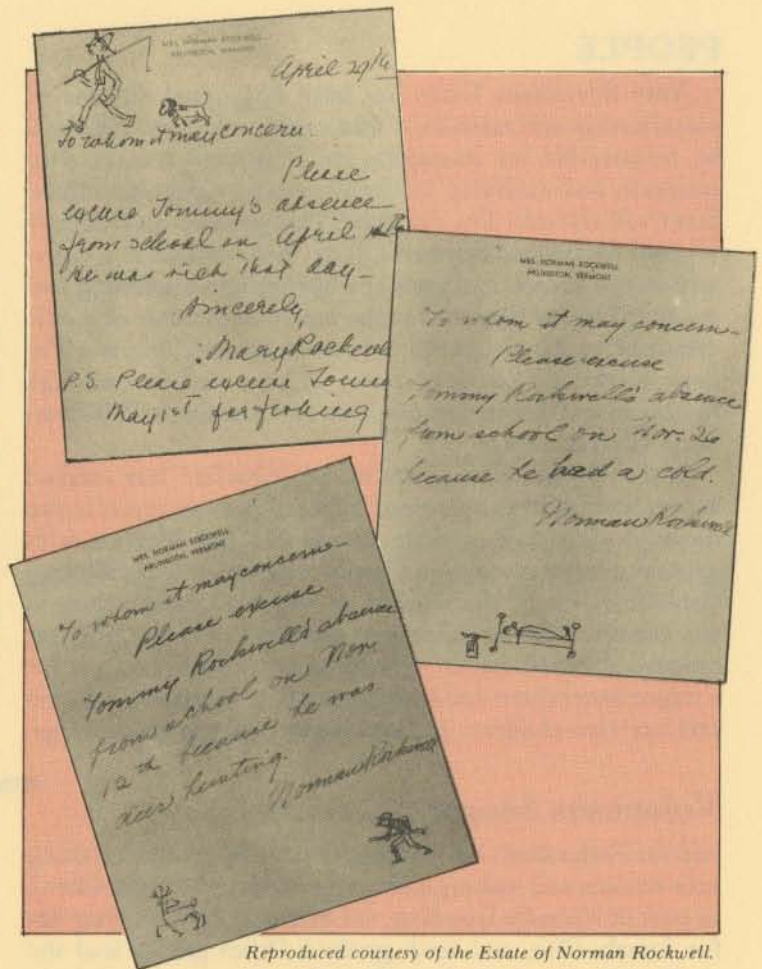 MRS. NORMAN ROCKWELL
ARLINGTON, VERMONT
April 29th
To whom it may concern
Please
excuse Tommy's absence
from school on April
he was sick that day—
Sincerely,
Mary Rockwell
P.S. Please excuse Tommy
May 1st for fishing
MRS. NORMAN ROCKWELL
ARLINGTON, VERMONT
To whom it may concern—
Please excuse
Tommy Rockwell's absence
from school on Nov. 26
because he had a cold.
Norman Rockwell
MRS. NORMAN ROCKWELL
ARLINGTON, VERMONT
To whom it may concern—
Please excuse
Tommy Rockwell's absence
from school on Nov.
12th because he was
deer hunting.
Norman Rockwell
Reproduced courtesy of the Estate of Norman Rockwell.